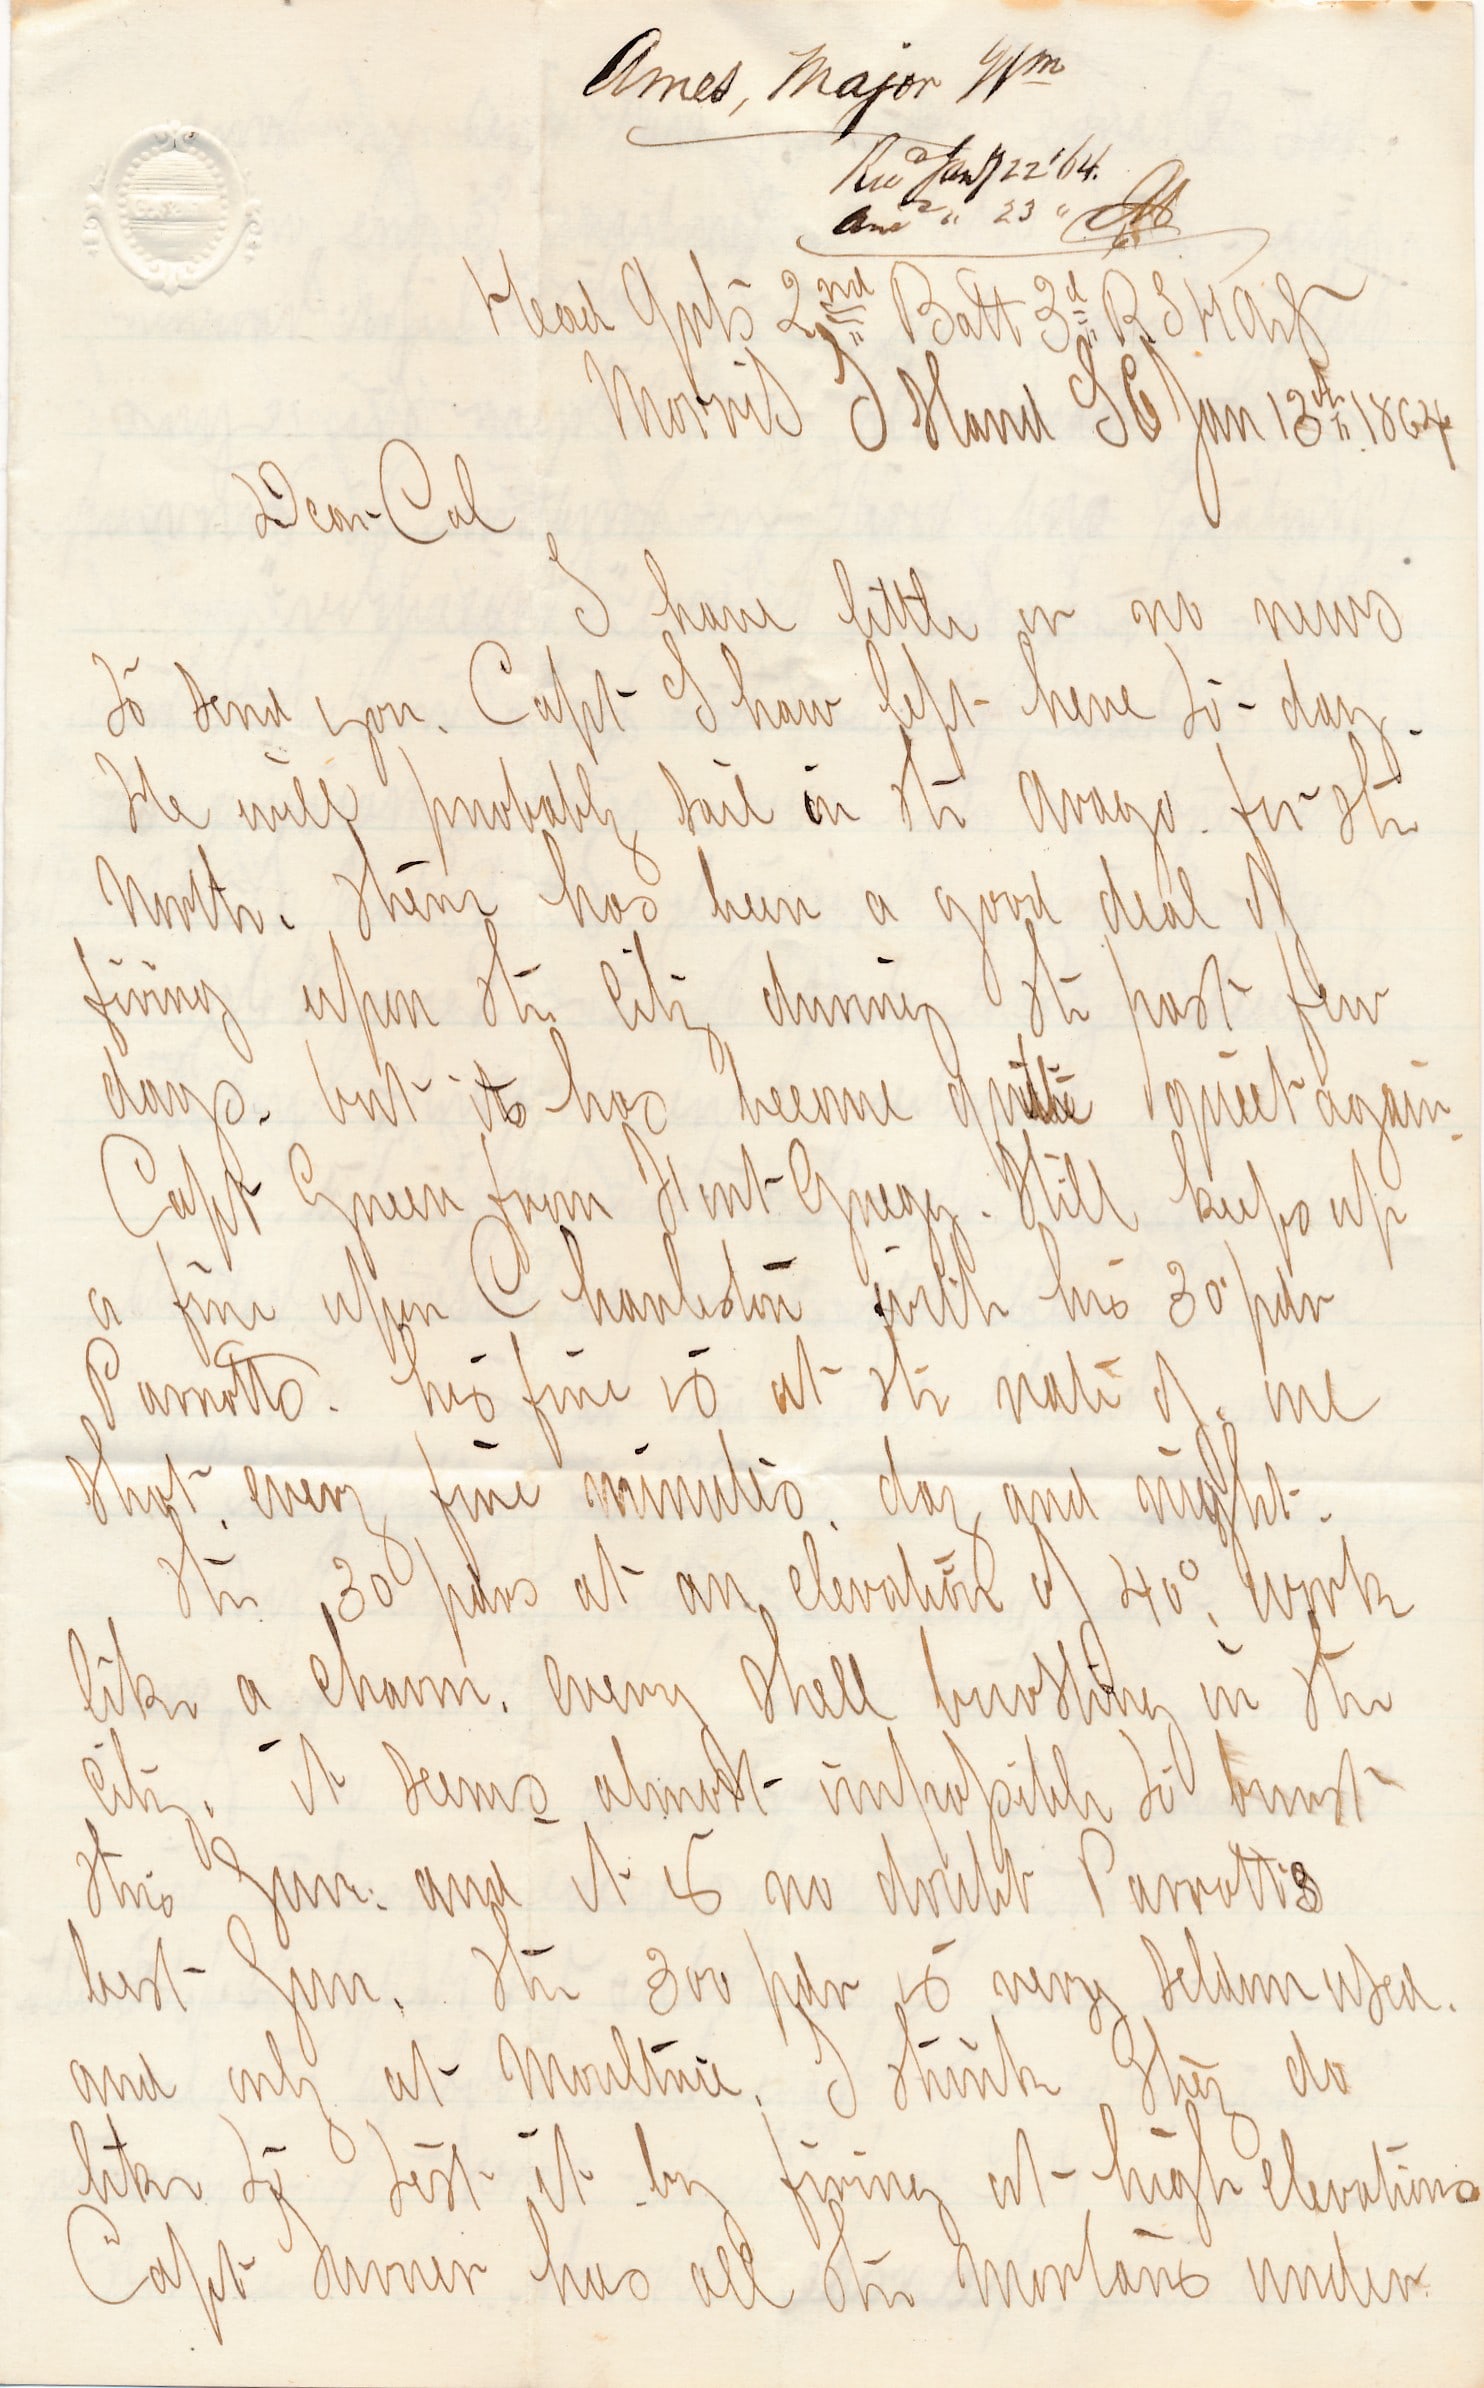 Ames, Major Wm
Recd Jany 22 '64.
Ansd " 23 "
Head Qrts 2nd Batt 3d R I H Art
Morris Island S C Jan 13th 1864
Dear Col
I have little or no news
to send you. Capt Shaw left here to-day.
He will probably sail in the Arago. for the
North. There has been a good deal of
firing upon the City during the past few
days. but its has become quite quiet again.
Capt Green from Fort Gregg. Still keeps up
a fire upon Charleston with his 30 pdr
Parrotts. his fire is at the rate of. one
Shot. every five minutes. day and night.
The 30 pdrs at an elevation of 40°. work
like a charm. every Shell bursting in the
City. it seems almost impossible to burst
this Gun. and it is no doubt Parrotts
best Gun. The 300 pdr is very seldom used.
and only at Moultrie. I think they do
like to test it by firing at high elevations
Capt Turner has all the Mortars under